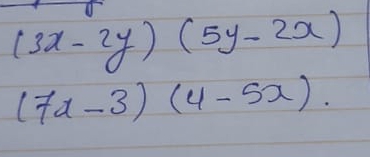 (3x - 2y) (5y - 2x)
(7x - 3) (4 - 5x).